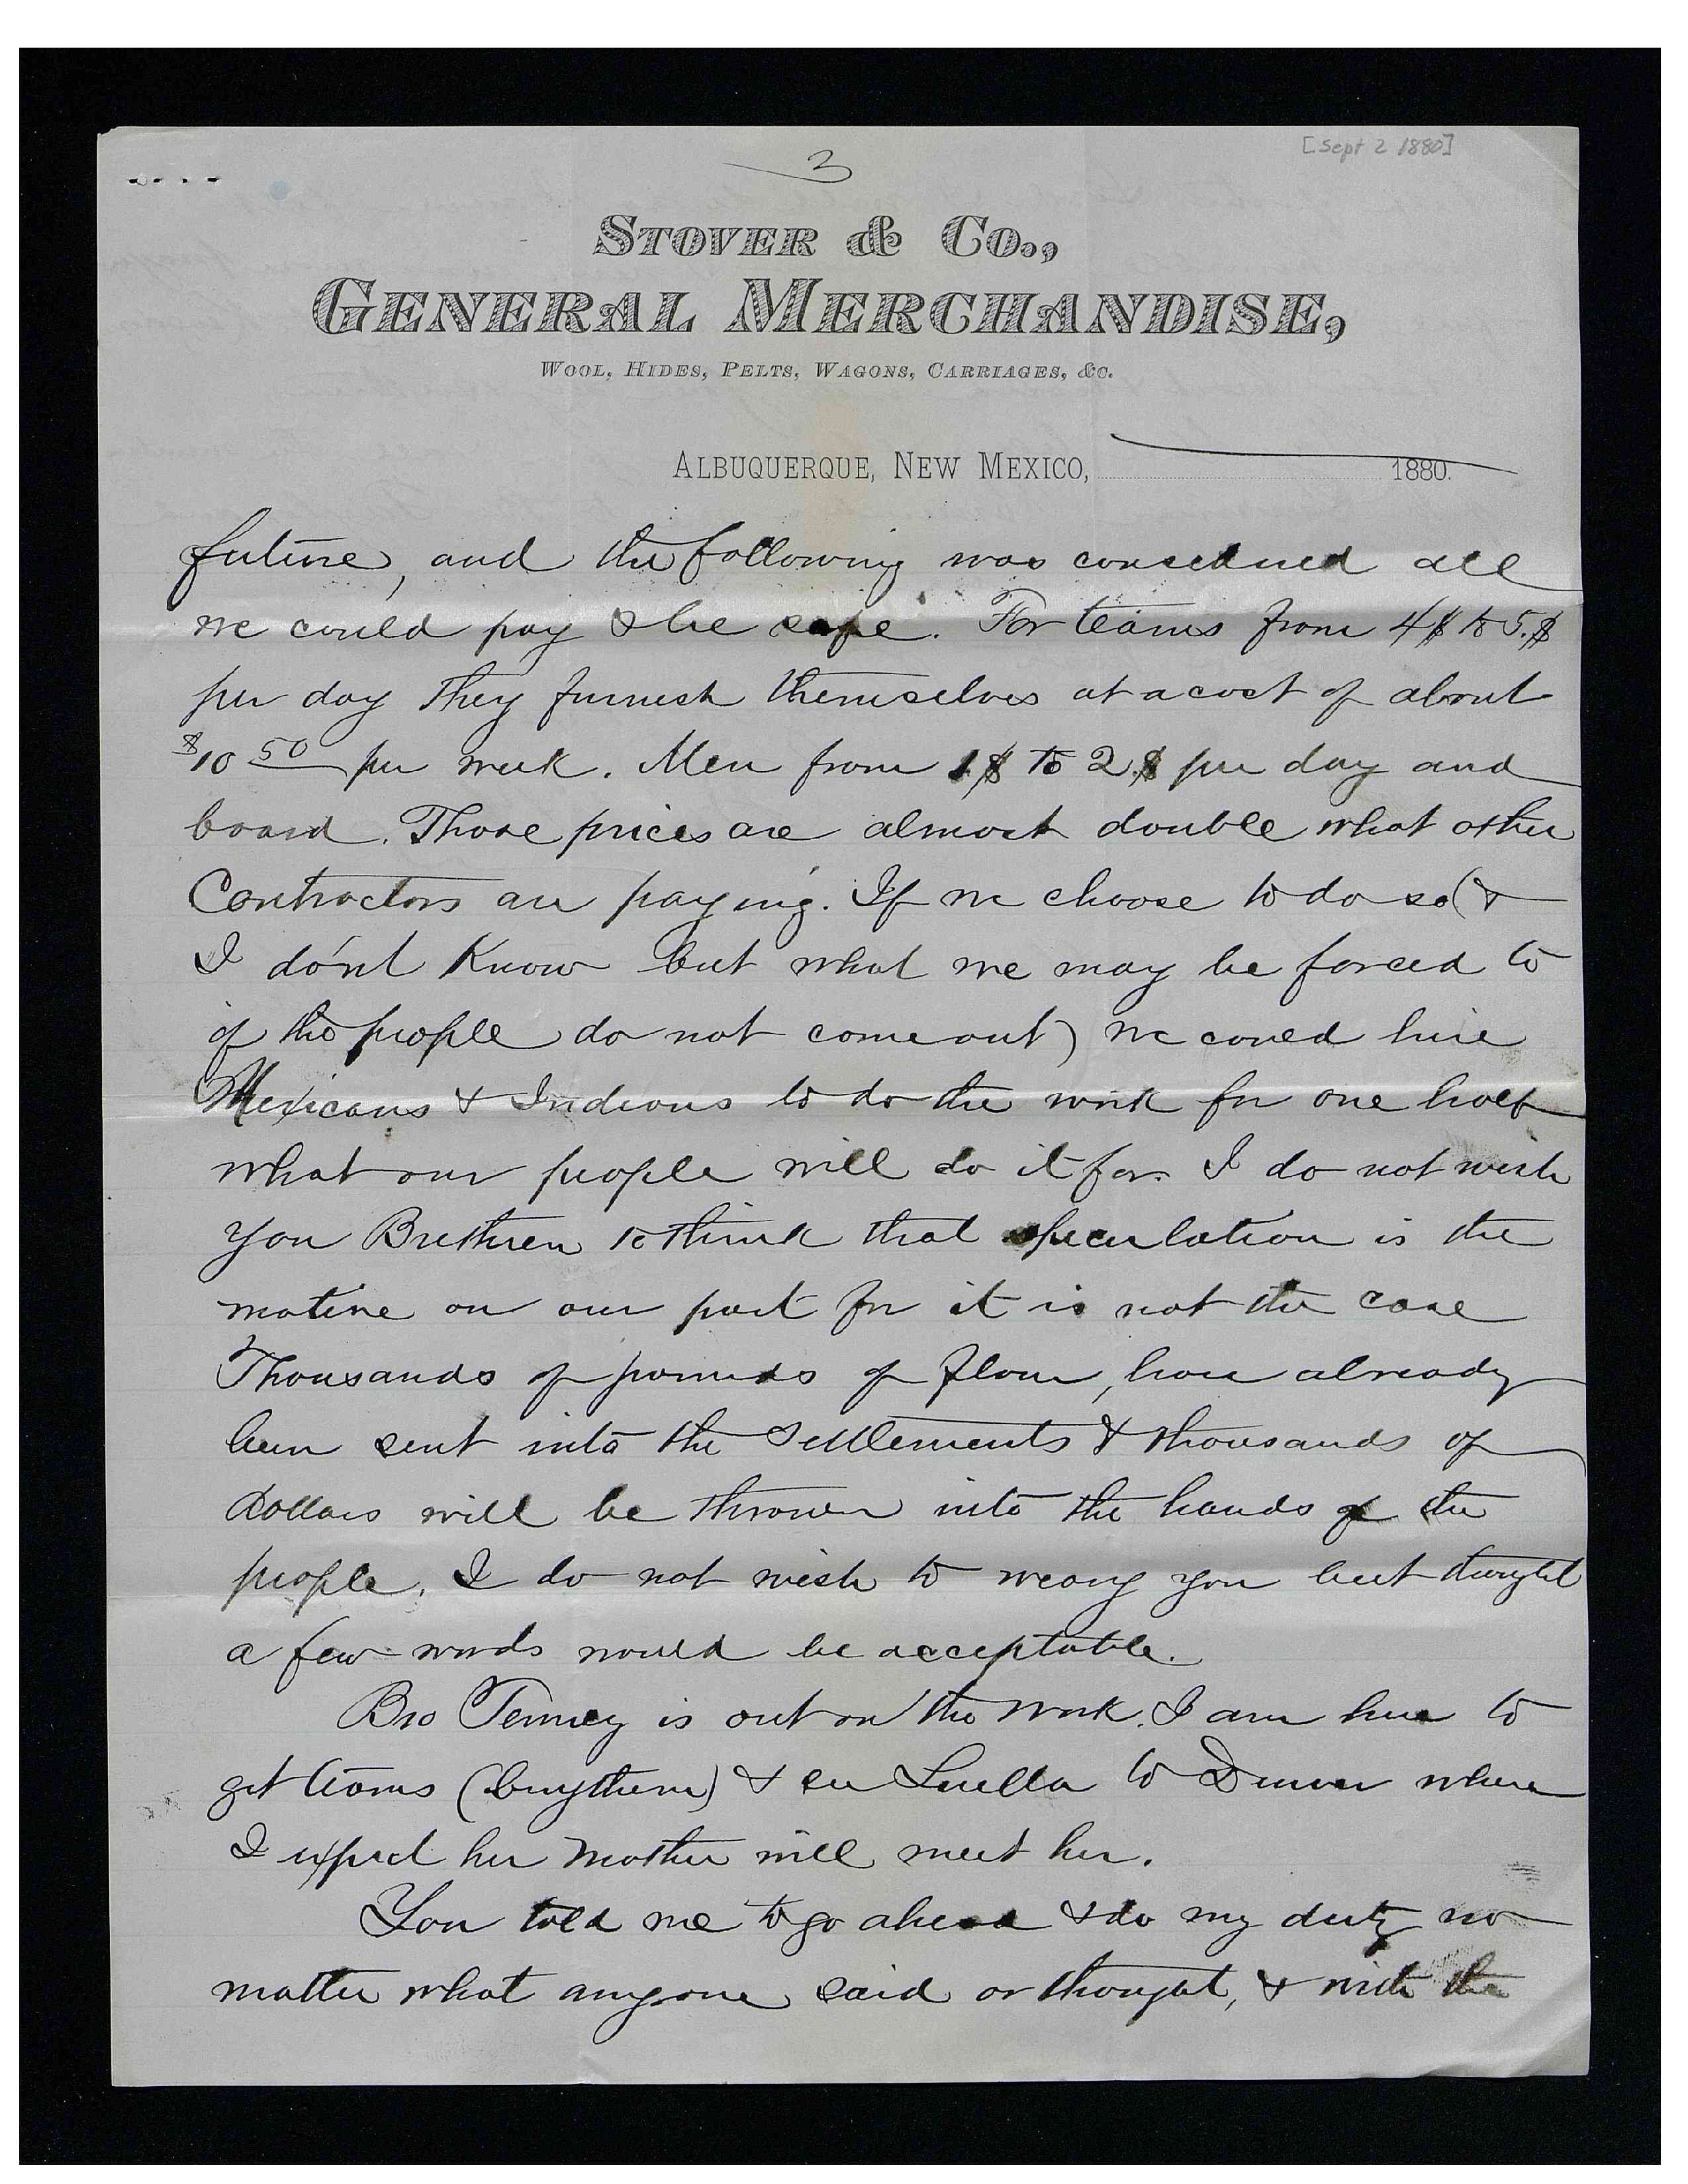 [Sept 2 1880]
3
STOVER & CO.,
GENERAL MERCHANDISE,
WOOL, HIDES, PELTS, WAGONS, CARRIAGES, &C.
ALBUQUERQUE, NEW MEXICO, 1880.
future, and the following was considered all
we could pay & be safe. For teams from 4$ to 5.$
per day they furnish themselves at a cost of about
$10 50 per week. Men from 1$ to 2.$ per day and
board. Those prices are almost double what other
Contractors are paying. If we choose to do so (&
I do'nt Know but what we may be forced to
if the people do not come out) we could hire
Mexicans & Indians to do the work for one half
what our people will do it for. I do not wish
you Brethren to think that speculation is the
motive on our part for it is not the case
Thousands of pounds of flour, have already
been sent into the Settlements & thousands of
dollars will be thrown into the hands of the
people. I do not wish to weary you but thought
a few words would be acceptable.
Bro Tenney is out on the work. I am here to
get teams (buy them) & see Luella to Denver where
I expect her Mother will meet her.
You told me to go ahead & do my duty no
matter what anyone said or thought, & with the